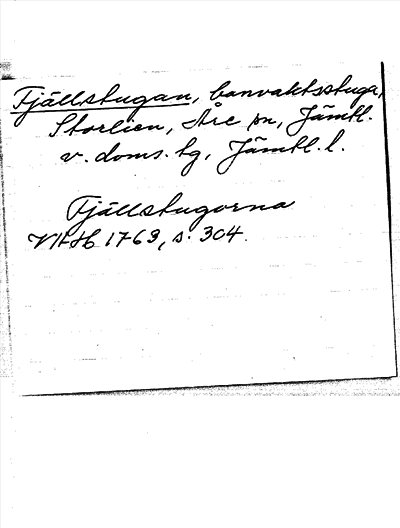 Fjällstugan, banvaktsstuga,
Storlien, Åre sn, Jämtl.
v. doms. tg, Jämtl. l.
Fjällstugorna
1769, s. 304.